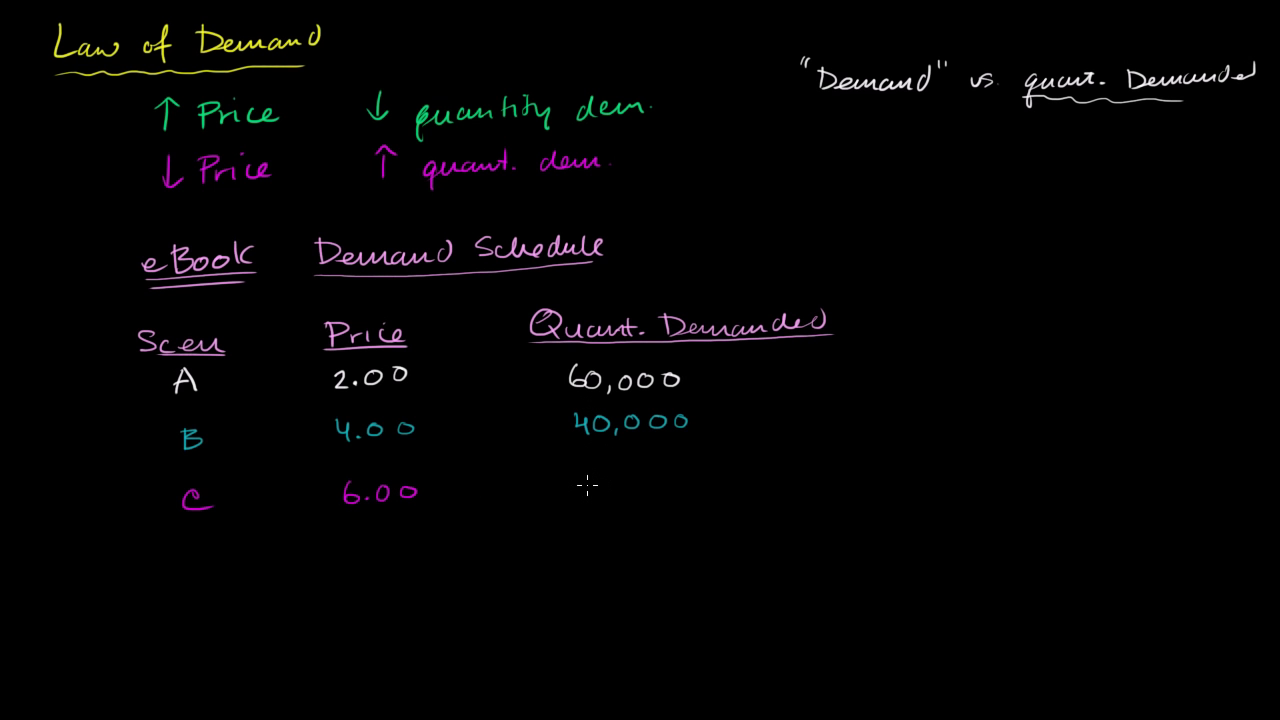 Law of Demand
"Demand" vs. quant. Demanded
↑ Price ↓ quantity dem.
↓ Price ↑ quant. dem.
eBook Demand Schedule
Scen Price Quant. Demanded
A 2.00 60,000
B 4.00 40,000
C 6.00